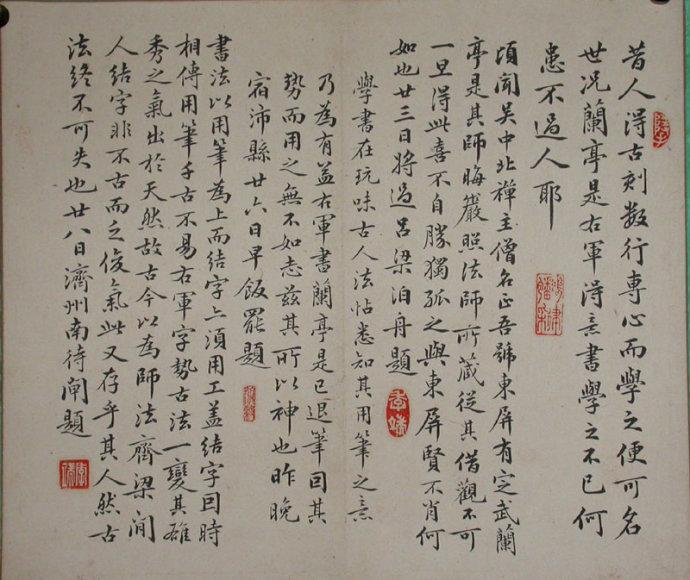 昔人得古刻數行專心而學之便可名
世況蘭亭是右軍得意書學之不已何
患不過人耶
頃聞吳中北禪主僧名正吾號東屏有定武蘭
亭是其師晦巖照法師所藏從其借觀不可
一旦得此喜不自勝獨孤之與東屏賢不肖何
如也廿三日將過呂梁泊舟題
學書在玩味古人法帖悉知其用筆之意
乃為有益右軍書蘭亭是已退筆因其
勢而用之無不如志茲其所以神也昨晚
宿沛縣廿六日早飯罷題
書法以用筆為上而結字亦須用工蓋結字因時
相傳用筆千古不易右軍字勢古法一變其雄
秀之氣出於天然故古今以為師法齊梁間
人結字非不古而乏俊氣此又存乎其人然古
法終不可失也廿八日濟州南待閘題